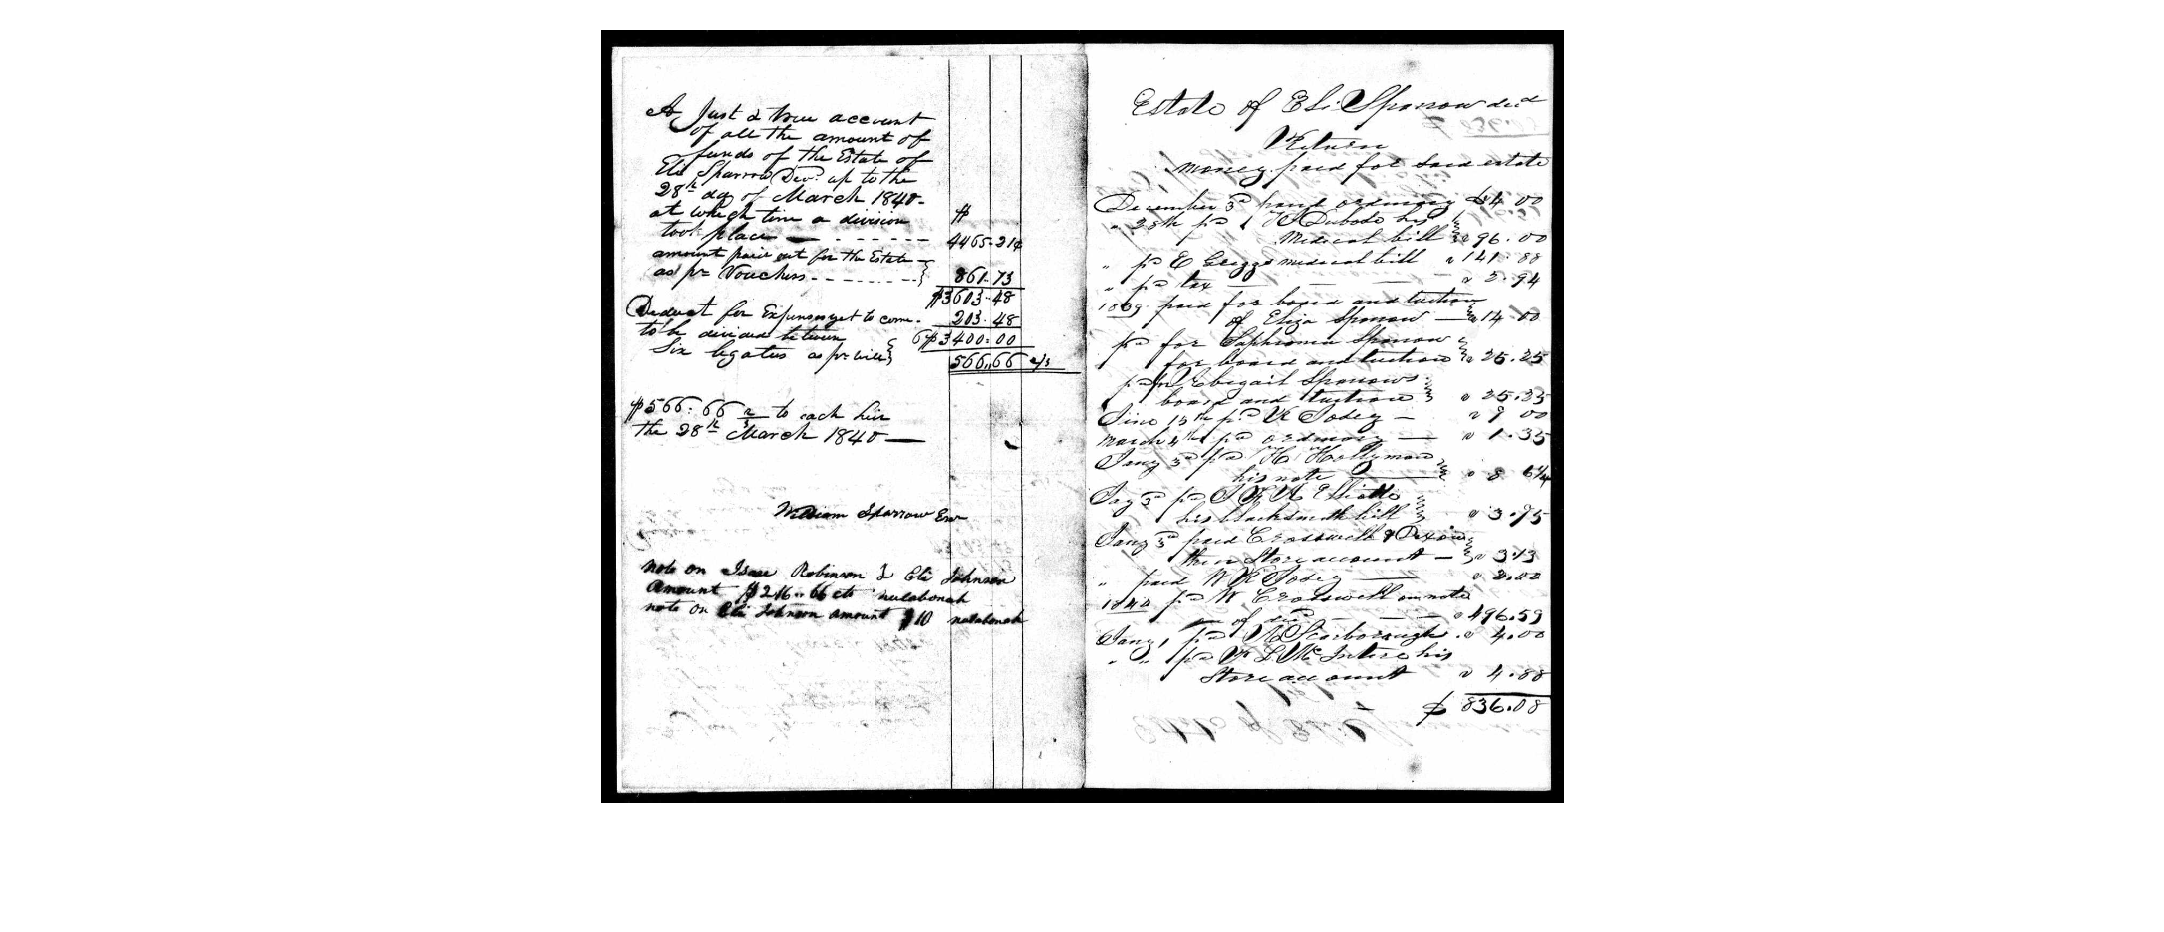 A Just & true account
of all the amount of
funds of the Estate of
Eli Sparrow Decd. up to the
28th day of March 1840-
at which time a division $
took place — - - - - - - 4465.21¢
amount paid out for the Estate
as pr Vouchers - - - - - - - - } 861.73
$3603.48
Deduct for Expenses yet to come. 203.48
to be divided between 6 $3400.00
Six legatees as pr will } 566,,66 2/3
$566.66 2/3 to each heir
the 28th March 1840 —
William Sparrow Exr
note on Isaac Robinson & Eli Johnson
Amount $216.. 66 cts nulabonah
note on Eli Johnson amount $10 nulabonah
Estate of Eli Sparrow decd
Return
Money paid for said estate
December 3d paid ordinary $4.00
" 25th pd Dubode his
Medical bill } " 96.00
" pd E Griggs medical bill " 141.88
" pd tax — — — " 2.94
1839 paid for board and tuition
of Eliza Sparrow — " 14 00
pd for Sophronia Sparrow
for board and tuition } " 25.25
pd for Abigail Sparrows
board and tuition } " 25.35
15th pd — " 9 00
March 4th pd ordinary — " 1.35
Jany 3d pd H Hollyman
his note — } " 8 6 1/4
Jay 3d pd Elliotte
his blacksmith bill } " 3.75
Jany 3d paid Crosswell & Dixon
their Store account — } " 3.13
" paid W — " 2.00
1840 pd W Crosswell on note
of decd — — — " 496.59
Jany 1 pd Scarborough . " 4.00
" " pd McIntire his
Store account " 4.88
$ 836.08